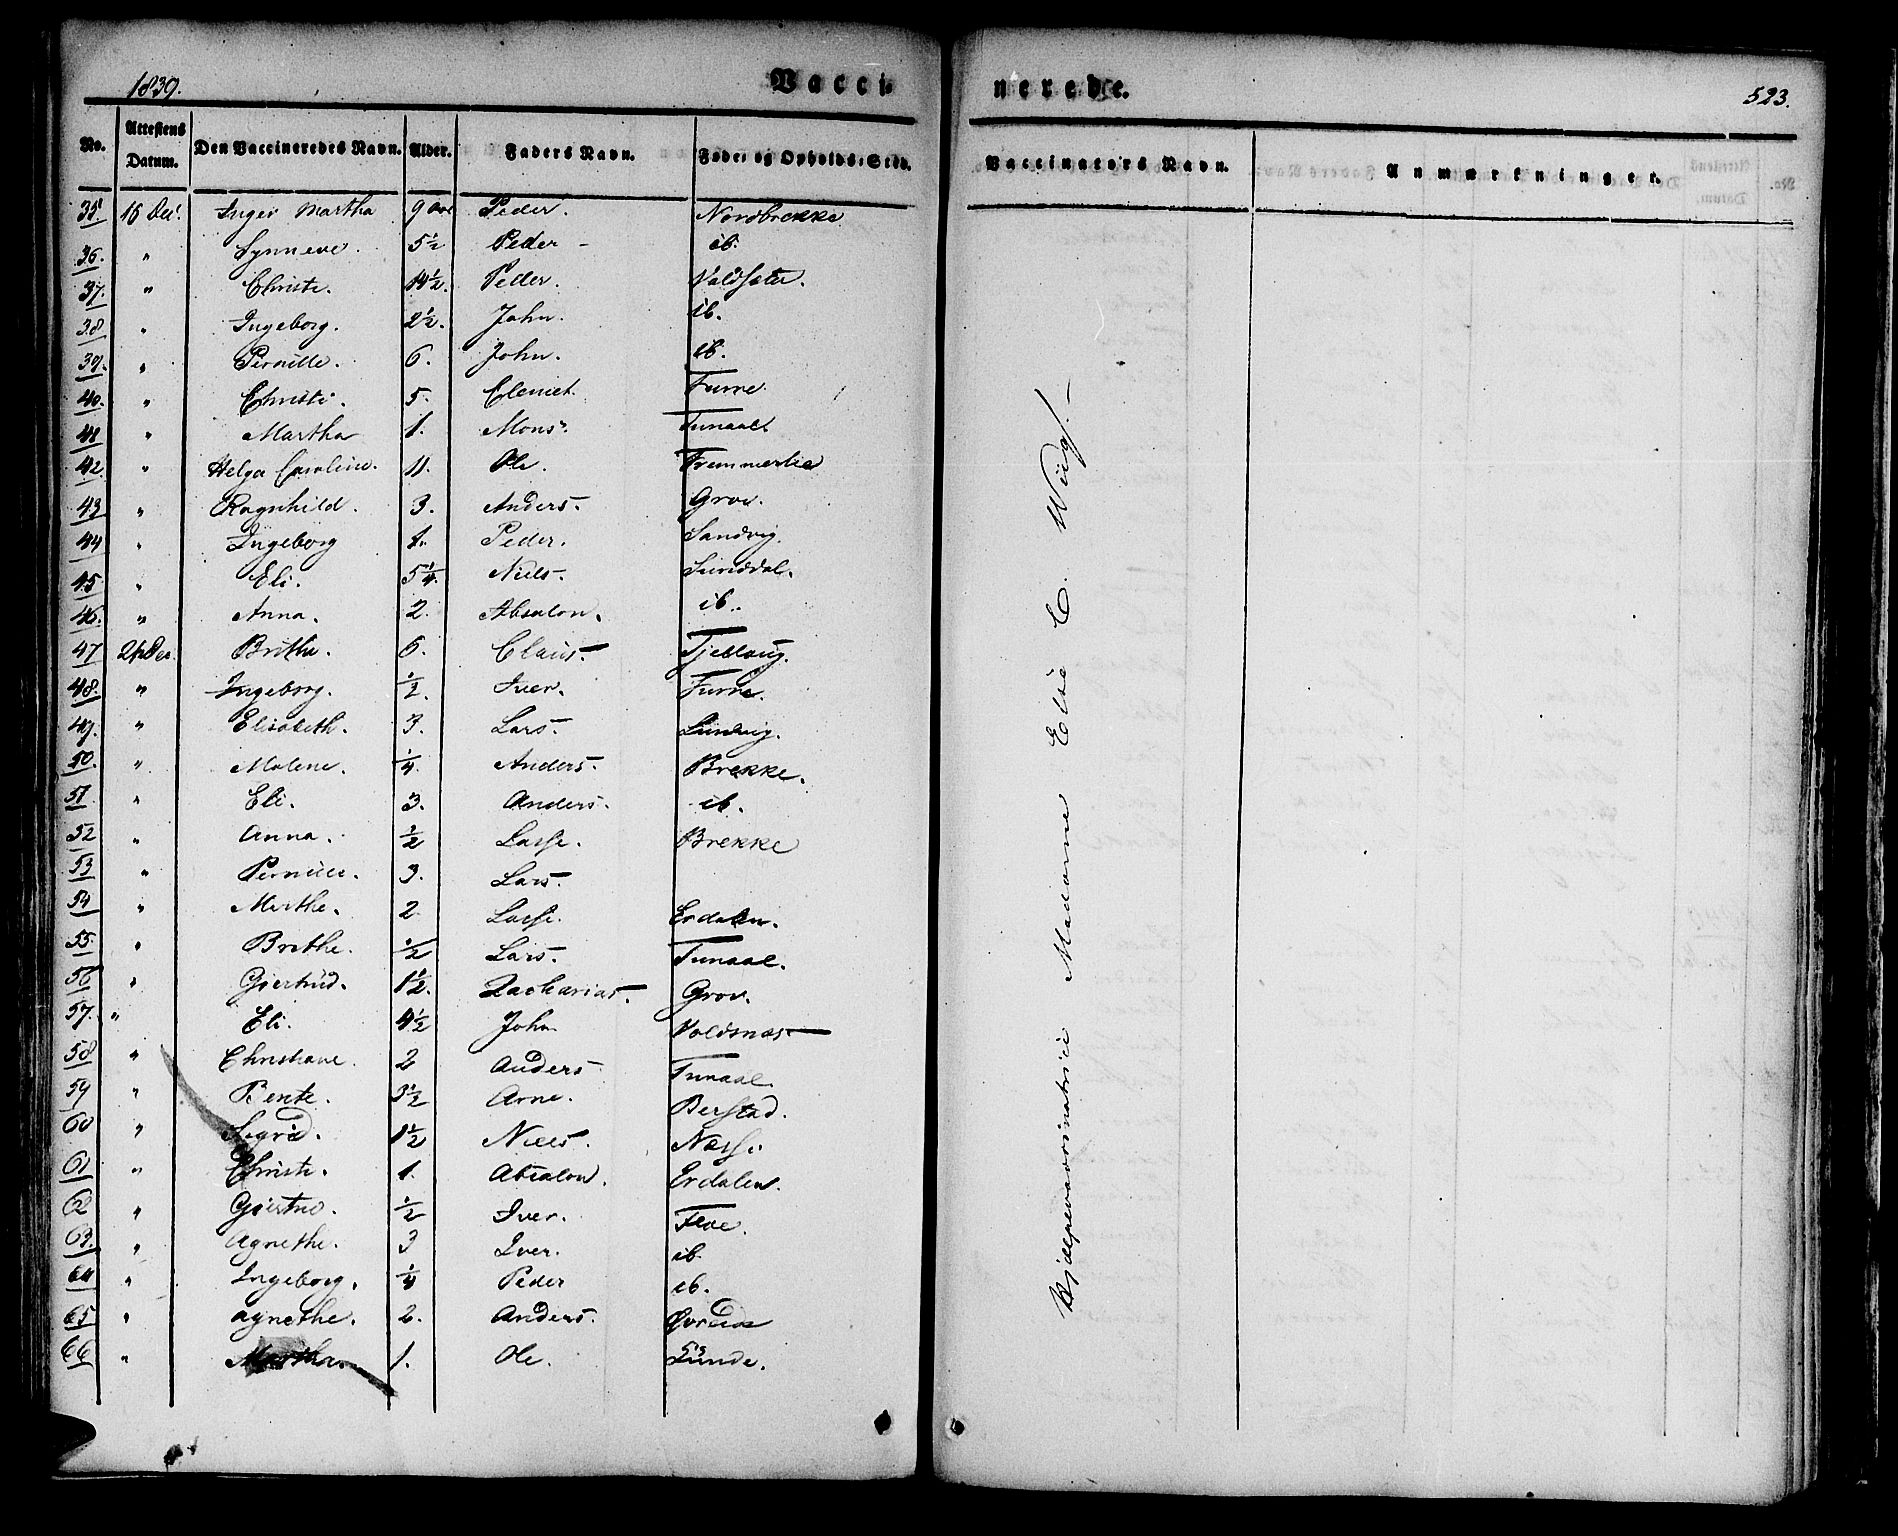 1839. Vacci- nerede. 523.
No. Attestens Datum. Den Vaccineredes Navn. Alder. Faders Navn. Føde- og Opholds-Sted. Vaccinators Navn. Anmærkninger.
35 16 Dec. Inger Martha 9 Peder. Nordbrekke
36. " Synneve. 5½ Peder - ib.
37. " Christi. 14½. Peder.
38 " Ingeborg. 2½. John. ib.
39. " Pernille. 6. John. ib.
40. " Christi. 5. Furre
41 " Martha 1. Mons. Tunaal
42 " Helga Caroline. 11. Ole.
43 " Ragnhild. 3. Anders. Grov.
44 " Ingeborg 1. Peder. Sandvig.
45 " Eli. 5¼. Niels. Sunddal.
46. " Anna. 2. Absalon. ib.
47 24 Dec. Brithe. 6. Claus. Tjellaug.
48. " Ingeborg. ½. Iver. Furre.
49. " Elisabeth. 3. Lars.
50. " Malene. ¼. Anders. Brekke.
51 " Eli. 3. Anders. ib.
52 " Anna. ½ Lasse. Brekke
53 " Pernille. 3. Lars.
54 " Merthe. 2. Lasse. Erdalen.
55. " Brithe. ½ Lars. Tunaal.
56 " Giertrud. 1½. Zacharias. Grov.
57. " Eli. 4½ John Voldsnæs.
58 " Christiane. 2 Anders Tunaal.
59 " Bente. 3½ Arne. Berstad.
60 " Sigrid. 1½ Niels. Næsse
61 " Christi. 1. Absalon. Erdalen.
62 " Giertrud. ½ Iver. Floe.
63. " Agnethe. 3 Iver. ib.
64 " Ingeborg. ¼ Peder ib.
65 " Agnethe. 2. Anders. Øvreide
66 " Martha. 1. Ole. Sunde.
Hjælpevaccinatrice Madame Elie C. Wiig. -